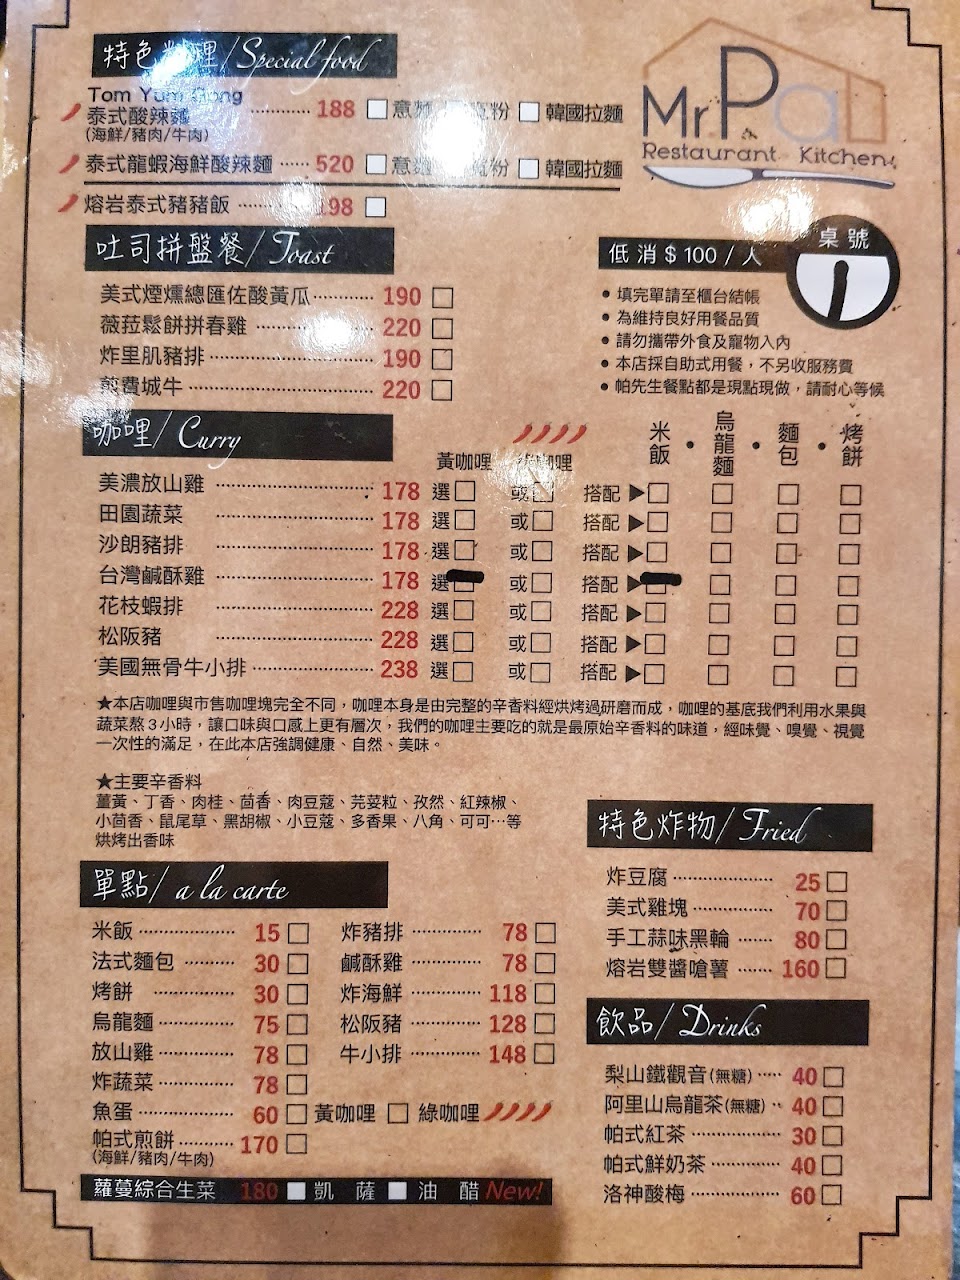 特色料理/Special food
Tom Yum Gong
泰式酸辣麵 188 意麵 寬粉 韓國拉麵
(海鮮/豬肉/牛肉)
泰式龍蝦海鮮酸辣麵 520 意麵 寬粉 韓國拉麵
熔岩泰式豬豬飯 198
Mr.Pa
Restaurant Kitchen
吐司拼盤餐/Toast
美式煙燻總匯佐酸黃瓜 190
薇菈鬆餅拼春雞 220
炸里肌豬排 190
煎費城牛 220
低消$100/人
桌號
1
• 填完單請至櫃台結帳
• 為維持良好用餐品質
• 請勿攜帶外食及寵物入內
• 本店採自助式用餐，不另收服務費
• 帕先生餐點都是現點現做，請耐心等候
咖哩/Curry
黃咖哩 綠咖哩 米飯 • 烏龍麵 • 麵包 • 烤餅
美濃放山雞 178 選 或 搭配▶
田園蔬菜 178 選 或 搭配▶
沙朗豬排 178 選 或 搭配▶
台灣鹹酥雞 178 選 或 搭配▶
花枝蝦排 228 選 或 搭配▶
松阪豬 228 選 或 搭配▶
美國無骨牛小排 238 選 或 搭配▶
★本店咖哩與市售咖哩塊完全不同，咖哩本身是由完整的辛香料經烘烤過研磨而成，咖哩的基底我們利用水果與
蔬菜熬3小時，讓口味與口感上更有層次，我們的咖哩主要吃的就是最原始辛香料的味道，經味覺、嗅覺、視覺
一次性的滿足，在此本店強調健康、自然、美味。
★主要辛香料
薑黃、丁香、肉桂、茴香、肉豆蔻、芫荽粒、孜然、紅辣椒、
小茴香、鼠尾草、黑胡椒、小豆蔻、多香果、八角、可可…等
烘烤出香味
單點/a la carte
米飯 15
法式麵包 30
烤餅 30
烏龍麵 75
放山雞 78
炸蔬菜 78
魚蛋 60 黃咖哩 綠咖哩
帕式煎餅 170
(海鮮/豬肉/牛肉)
炸豬排 78
鹹酥雞 78
炸海鮮 118
松阪豬 128
牛小排 148
蘿蔓綜合生菜 180 凱薩 油醋 New!
特色炸物/Fried
炸豆腐 25
美式雞塊 70
手工蒜味黑輪 80
熔岩雙醬嗆薯 160
飲品/Drinks
梨山鐵觀音(無糖) 40
阿里山烏龍茶(無糖) 40
帕式紅茶 30
帕式鮮奶茶 40
洛神酸梅 60